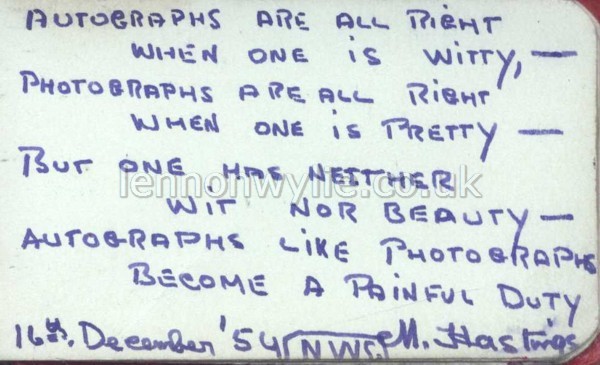 AUTOGRAPHS ARE ALL RIGHT
WHEN ONE IS WITTY, —
PHOTOGRAPHS ARE ALL RIGHT
WHEN ONE IS PRETTY —
BUT ONE HAS NEITHER
lennonwylie.co.uk
WIT NOR BEAUTY —
AUTOGRAPHS LIKE PHOTOGRAPHS
BECOME A PAINFUL DUTY
16th. December '54 NWC M. Hastings